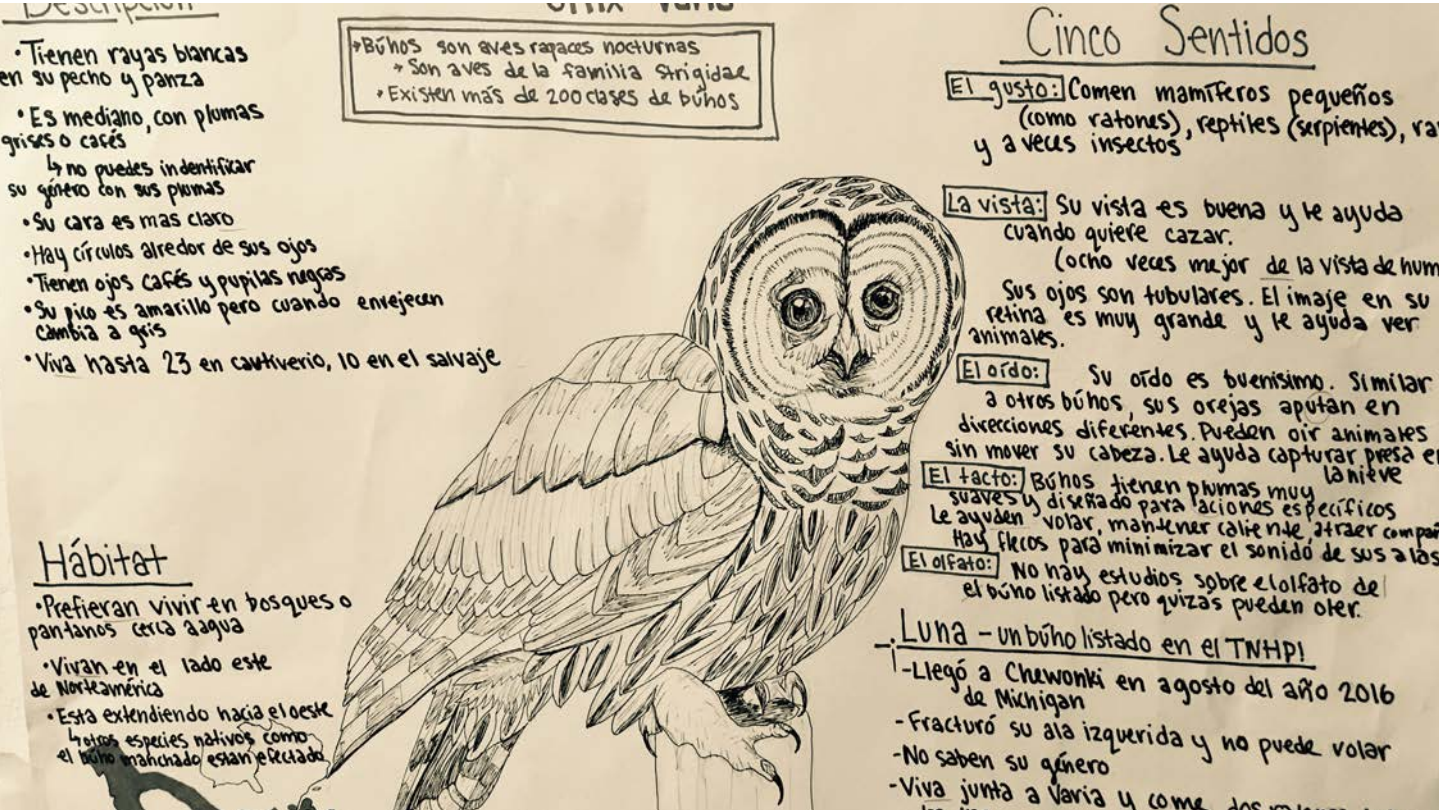 Descripción
• Tienen rayas blancas
en su pecho y panza
• Es mediano, con plumas
grises o cafés
↳ no puedes indentificar
su género con sus plumas
• Su cara es mas claro
• Hay círculos alredor de sus ojos
• Tienen ojos cafés y pupilas negras
• Su pico es amarillo pero cuando envejecen
cambia a gris
• Viva hasta 23 en cautiverio, 10 en el salvaje
Hábitat
• Prefieran vivir en bosques o
pantanos cerca aagua
• Vivan en el lado este
de Norteamérica
• Esta extendiendo hacia el oeste
↳ otros especies nativos como
el búho manchado estan efectado
Strix varia
• Búhos son aves rapaces nocturnas
• Son aves de la familia Strigidae
• Existen más de 200 clases de búhos
Cinco Sentidos
El gusto: Comen mamíferos pequeños
(como ratones), reptiles (serpientes),
y a veces insectos
La vista: Su vista es buena y le ayuda
cuando quiere cazar.
(ocho veces mejor de la vista de hum
Sus ojos son tubulares. El imaje en su
retina es muy grande y le ayuda ver
animales.
El oído: Su oído es buenísimo. Similar
a otros búhos, sus orejas aputan en
direcciones diferentes. Pueden oir animales
sin mover su cabeza. Le ayuda capturar presa en
la nieve
El tacto: Búhos tienen plumas muy
suaves y diseñado para aciones específicos
Le ayuden volar, mantener caliente, atraer compañ
Hay flecos para minimizar el sonido de sus alas
El olfato: No hay estudios sobre el olfato de
el búho listado pero quizás pueden oler.
Luna - un búho listado en el TNHP!
- Llegó a Chewonki en agosto del año 2016
de Michigan
- Fracturó su ala izquerida y no puede volar
- No saben su género
- Viva junta a Varia y come dos